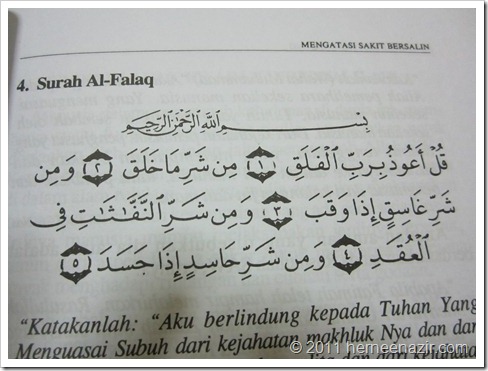 MENGATASI SAKIT BERSALIN
4. Surah Al-Falaq
بِسْمِ اللَّهِ الرَّحْمَٰنِ الرَّحِيمِ
قُلْ أَعُوذُ بِرَبِّ الْفَلَقِ ﴿١﴾ مِن شَرِّ مَا خَلَقَ ﴿٢﴾ وَمِن
شَرِّ غَاسِقٍ إِذَا وَقَبَ ﴿٣﴾ وَمِن شَرِّ النَّفَّاثَاتِ فِي
الْعُقَدِ ﴿٤﴾ وَمِن شَرِّ حَاسِدٍ إِذَا حَسَدَ ﴿٥﴾
"Katakanlah: "Aku berlindung kepada Tuhan Yang
Menguasai Subuh dari kejahatan makhluk Nya dan dari
© 2011 herneenazir.com